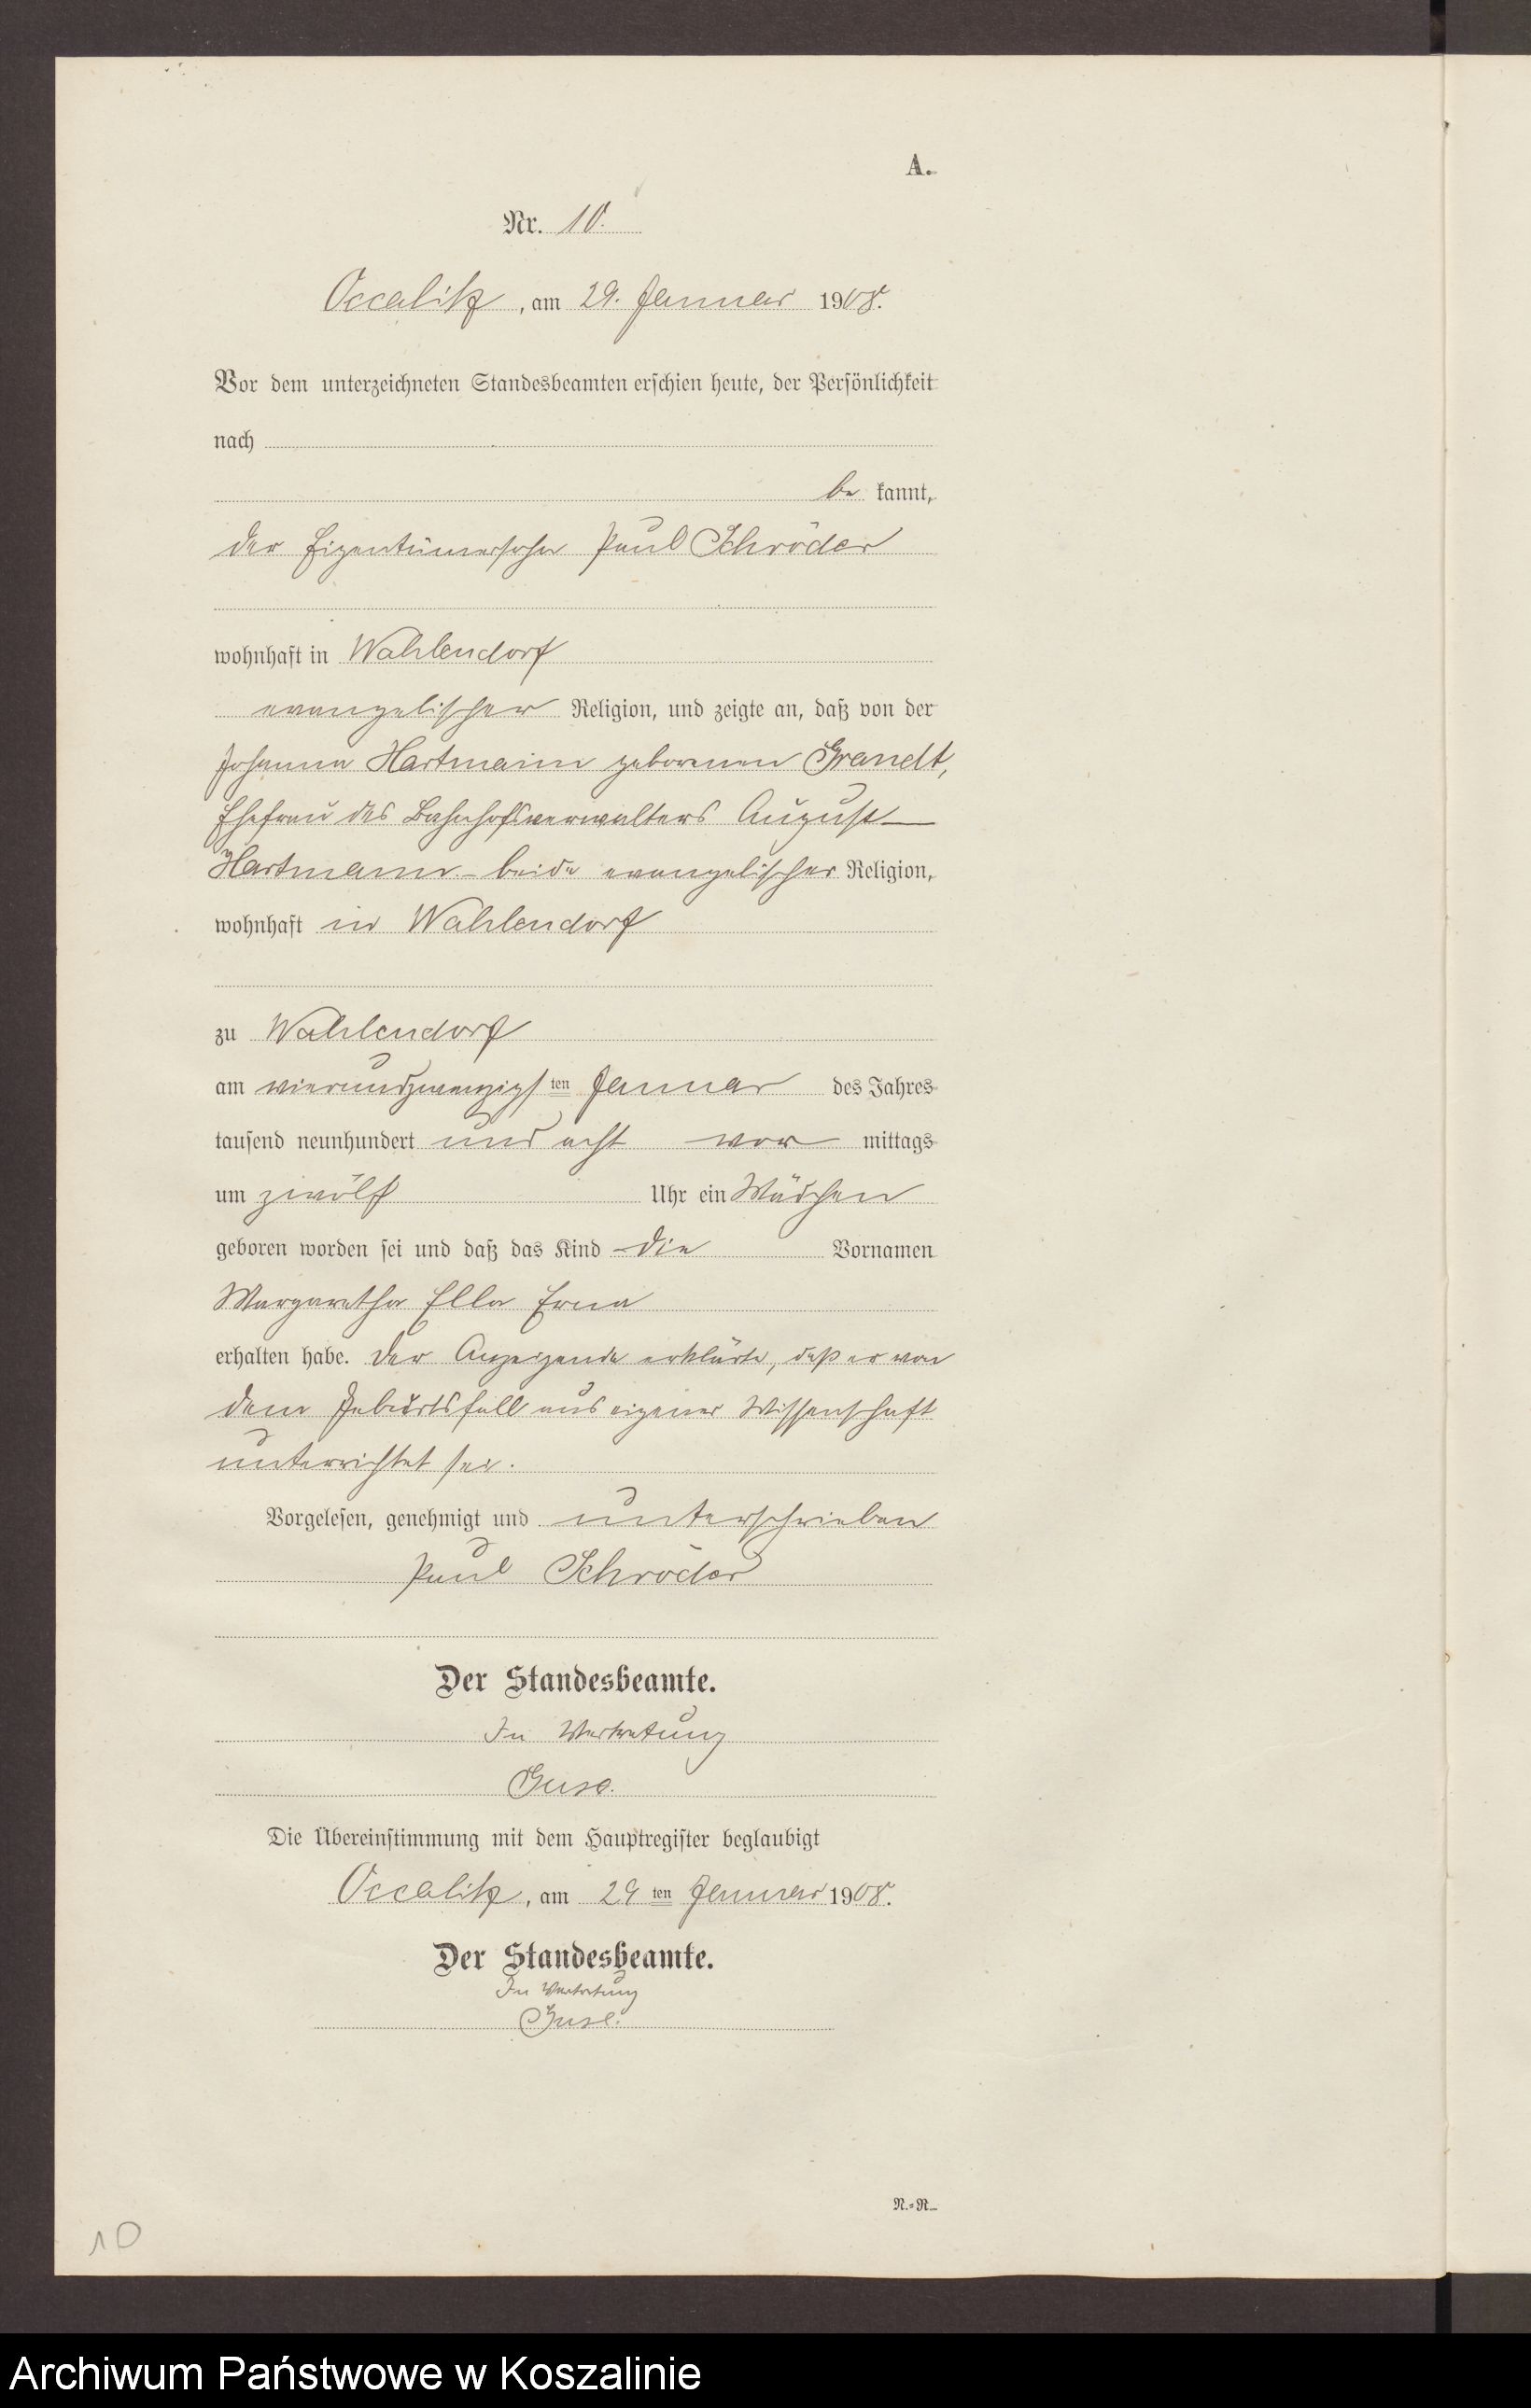 A.
Nr. 10.
Occalitz, am 29. Januar 1908.
Vor dem unterzeichneten Standesbeamten erschien heute, der Persönlichkeit
nach
be kannt,
der Eigentümersohn Paul Schröder
wohnhaft in Wahlendorf
evangelischer Religion, und zeigte an, daß von der
Johanna Hartmann geborenen Grandt,
Ehefrau des Bahnhofsverwalters August
Hartmann - beide evangelischer Religion,
wohnhaft in Wahlendorf
zu Wahlendorf
am vierundzwanzigsten Januar des Jahres
tausend neunhundert und acht vor mittags
um zwölf Uhr ein Mädchen
geboren worden sei und daß das Kind die Vornamen
Margaretha Ella Erna
erhalten habe. Der Anzeigende erklärte, daß er von
dem Geburtsfall aus eigener Wissenschaft
unterrichtet sei.
Vorgelesen, genehmigt und unterschrieben
Paul Schröder
Der Standesbeamte.
In Vertretung
Guse.
Die Übereinstimmung mit dem Hauptregister beglaubigt
Occalitz, am 29 ten Januar 1908.
Der Standesbeamte.
In Vertretung
Guse.
N.=R.
10
Archiwum Państwowe w Koszalinie